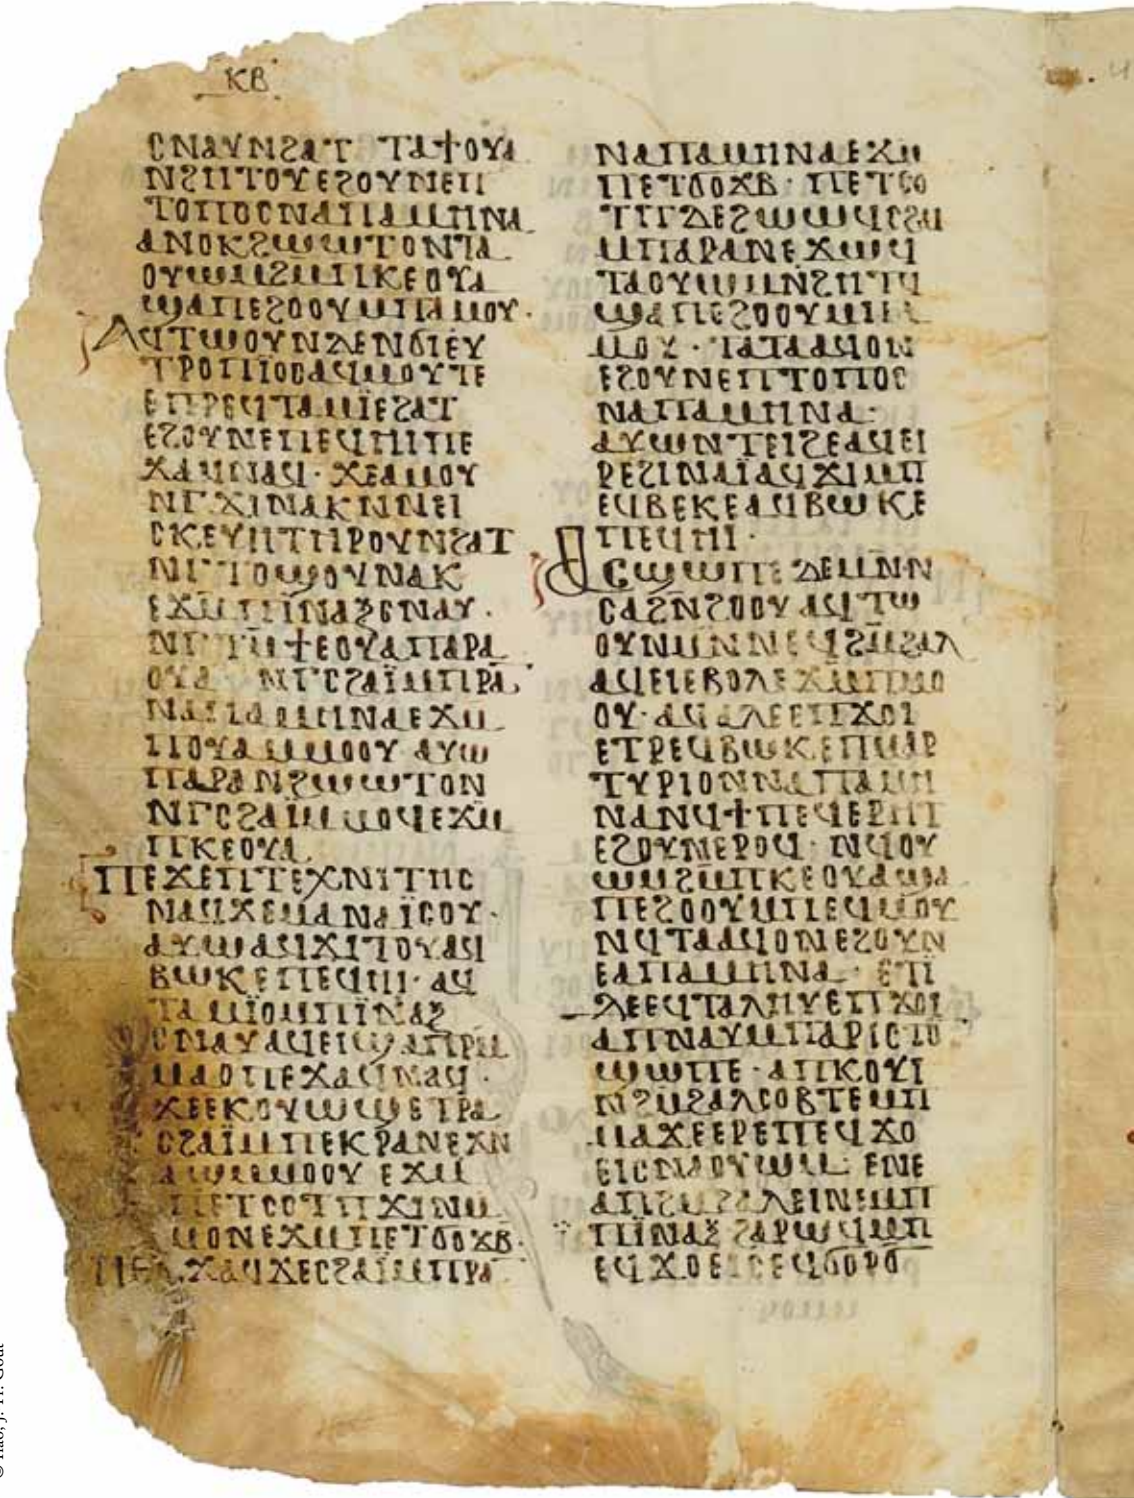 ⲕⲃ
ⲥⲛⲁⲩⲛϩⲁⲧ ⲧⲁϯⲟⲩⲁ
ⲛϩⲏⲧⲟⲩⲉϩⲟⲩⲛⲉⲡ
ⲧⲟⲡⲟⲥⲛⲁⲡⲁⲙⲏⲛⲁ
ⲁⲛⲟⲕϩⲱⲱⲧⲟⲛⲧⲁ
ⲟⲩⲱⲙϩⲙⲡⲕⲉⲟⲩⲁ
ϣⲁⲡⲉϩⲟⲟⲩⲙⲡⲁⲙⲟⲩ·
ⲁϥⲧⲱⲟⲩⲛⲇⲉⲛϭⲓⲉⲩ
ⲧⲣⲟⲡⲓⲟⲥⲁϥⲙⲟⲩⲧⲉ
ⲉⲡⲣⲉϥⲧⲁⲙⲓⲉϩⲁⲧ
ⲉϩⲟⲩⲛⲉⲡⲉϥⲏⲓⲡⲉ
ϫⲁϥⲛⲁϥ· ϫⲉⲁⲙⲟⲩ
ⲛⲅϫⲓⲛⲁⲕⲛⲛⲉⲓ
ⲥⲕⲉⲩⲏⲧⲏⲣⲟⲩⲛϩⲁⲧ
ⲛⲅⲧⲟϣⲟⲩⲛⲁⲕ
ⲉϫⲙⲡⲓⲛⲁⲝⲥⲛⲁⲩ·
ⲛⲅⲧⲙϯⲉⲟⲩⲁⲡⲁⲣⲁ
ⲟⲩⲁ ⲛⲅⲥϩⲁⲓⲙⲡⲣⲁ
ⲛⲁⲡⲁⲙⲏⲛⲁⲉϫⲙ
ⲡⲟⲩⲁⲙⲙⲟⲟⲩ ⲁⲩⲱ
ⲡⲁⲣⲁⲛϩⲱⲱⲧⲟⲛ
ⲛⲅⲥϩⲁⲓⲙⲙⲟϥⲉϫⲙ
ⲡⲕⲉⲟⲩⲁ
ⲡⲉϫⲉⲡⲧⲉⲭⲛⲓⲧⲏⲥ
ⲛⲁϥϫⲉⲙⲁⲛⲁⲓⲥⲟⲩ·
ⲁⲩⲱⲁϥϫⲓⲧⲟⲩⲁϥ
ⲃⲱⲕⲉⲡⲉϥⲏⲓ· ⲁϥ
ⲧⲁⲙⲓⲟⲙⲡⲓⲛⲁⲝ
ⲥⲛⲁⲩⲁϥⲉⲓϣⲁⲡⲣⲙ
ⲙⲁⲟⲡⲉϫⲁϥⲛⲁϥ·
ϫⲉⲉⲕⲟⲩⲱϣⲉⲧⲣⲁ
ⲥϩⲁⲓⲙⲡⲉⲕⲣⲁⲛⲉϫⲛ
ⲁϣⲙⲙⲟⲟⲩ ⲉϫⲙ
ⲡⲉⲧⲥⲟⲧⲡϫⲓⲛⲙ
ⲙⲟⲛⲉϫⲙⲡⲉⲧϭⲟϫⲃ·
ⲡⲉϫⲁϥϫⲉⲥϩⲁⲓⲙⲡⲣⲁ
ⲛⲁⲡⲁⲙⲏⲛⲁⲉϫⲙ
ⲡⲉⲧϭⲟϫⲃ· ⲡⲉⲧⲥⲟ
ⲧⲡⲇⲉϩⲱⲱϥⲥϩⲁⲓ
ⲙⲡⲁⲣⲁⲛⲉϫⲱϥ
ⲧⲁⲟⲩⲱⲙⲛϩⲏⲧϥ
ϣⲁⲡⲉϩⲟⲟⲩⲙⲡⲁ
ⲙⲟⲩ· ⲧⲁⲧⲁⲁϥⲟⲛ
ⲉϩⲟⲩⲛⲉⲡⲧⲟⲡⲟⲥ
ⲛⲁⲡⲁⲙⲏⲛⲁ·
ⲁⲩⲱⲛⲧⲉⲓϩⲉⲁϥⲉⲓ
ⲣⲉϩⲓⲛⲁⲓⲁϥϫⲓⲙⲡ
ⲉϥⲃⲉⲕⲉⲁϥⲃⲱⲕⲉ
ⲡⲉϥⲏⲓ·
ⲁⲥϣⲱⲡⲉⲇⲉⲙⲛⲛ
ⲥⲁϩⲛϩⲟⲟⲩⲁϥⲧⲱ
ⲟⲩⲛⲙⲛⲛⲉϥϩⲙϩⲁⲗ
ⲁϥⲉⲓⲉⲃⲟⲗⲉϫⲙⲡⲙⲟ
ⲟⲩ· ⲁϥⲁⲗⲉⲉⲡϫⲟⲓ
ⲉⲧⲣⲉϥⲃⲱⲕⲉⲡⲙⲁⲣ
ⲧⲩⲣⲓⲟⲛⲛⲁⲡⲁⲙⲏ
ⲛⲁⲛϥϯⲡⲉϥⲉⲣⲏⲧ
ⲉϩⲟⲩⲛⲉⲣⲟϥ· ⲛϥⲟⲩ
ⲱⲙϩⲙⲡⲕⲉⲟⲩⲁϣⲁ
ⲡⲉϩⲟⲟⲩⲙⲡⲉϥⲙⲟⲩ
ⲛϥⲧⲁⲁϥⲟⲛⲉϩⲟⲩⲛ
ⲉⲁⲡⲁⲙⲏⲛⲁ· ⲉⲧⲓ
ⲇⲉⲉϥⲧⲁⲗⲏⲩⲉⲡϫⲟⲓ
ⲁⲡⲛⲁⲩⲙⲡⲁⲣⲓⲥⲧⲟ
ϣⲱⲡⲉ· ⲁⲡⲕⲟⲩⲓ
ⲛϩⲙϩⲁⲗⲥⲟⲃⲧⲉⲙⲡ
ⲙⲁϫⲉⲉⲣⲉⲡⲉϥϫⲟ
ⲉⲓⲥⲛⲁⲟⲩⲱⲙ· ⲉⲛⲉ
ⲁⲡϩⲙϩⲁⲗⲉⲓⲛⲉⲙⲡ
ⲡⲓⲛⲁⲝ ϩⲁⲣⲱϥⲙⲡ
ⲉϥϫⲟⲉⲓⲥⲉϥϭⲟⲣϭ